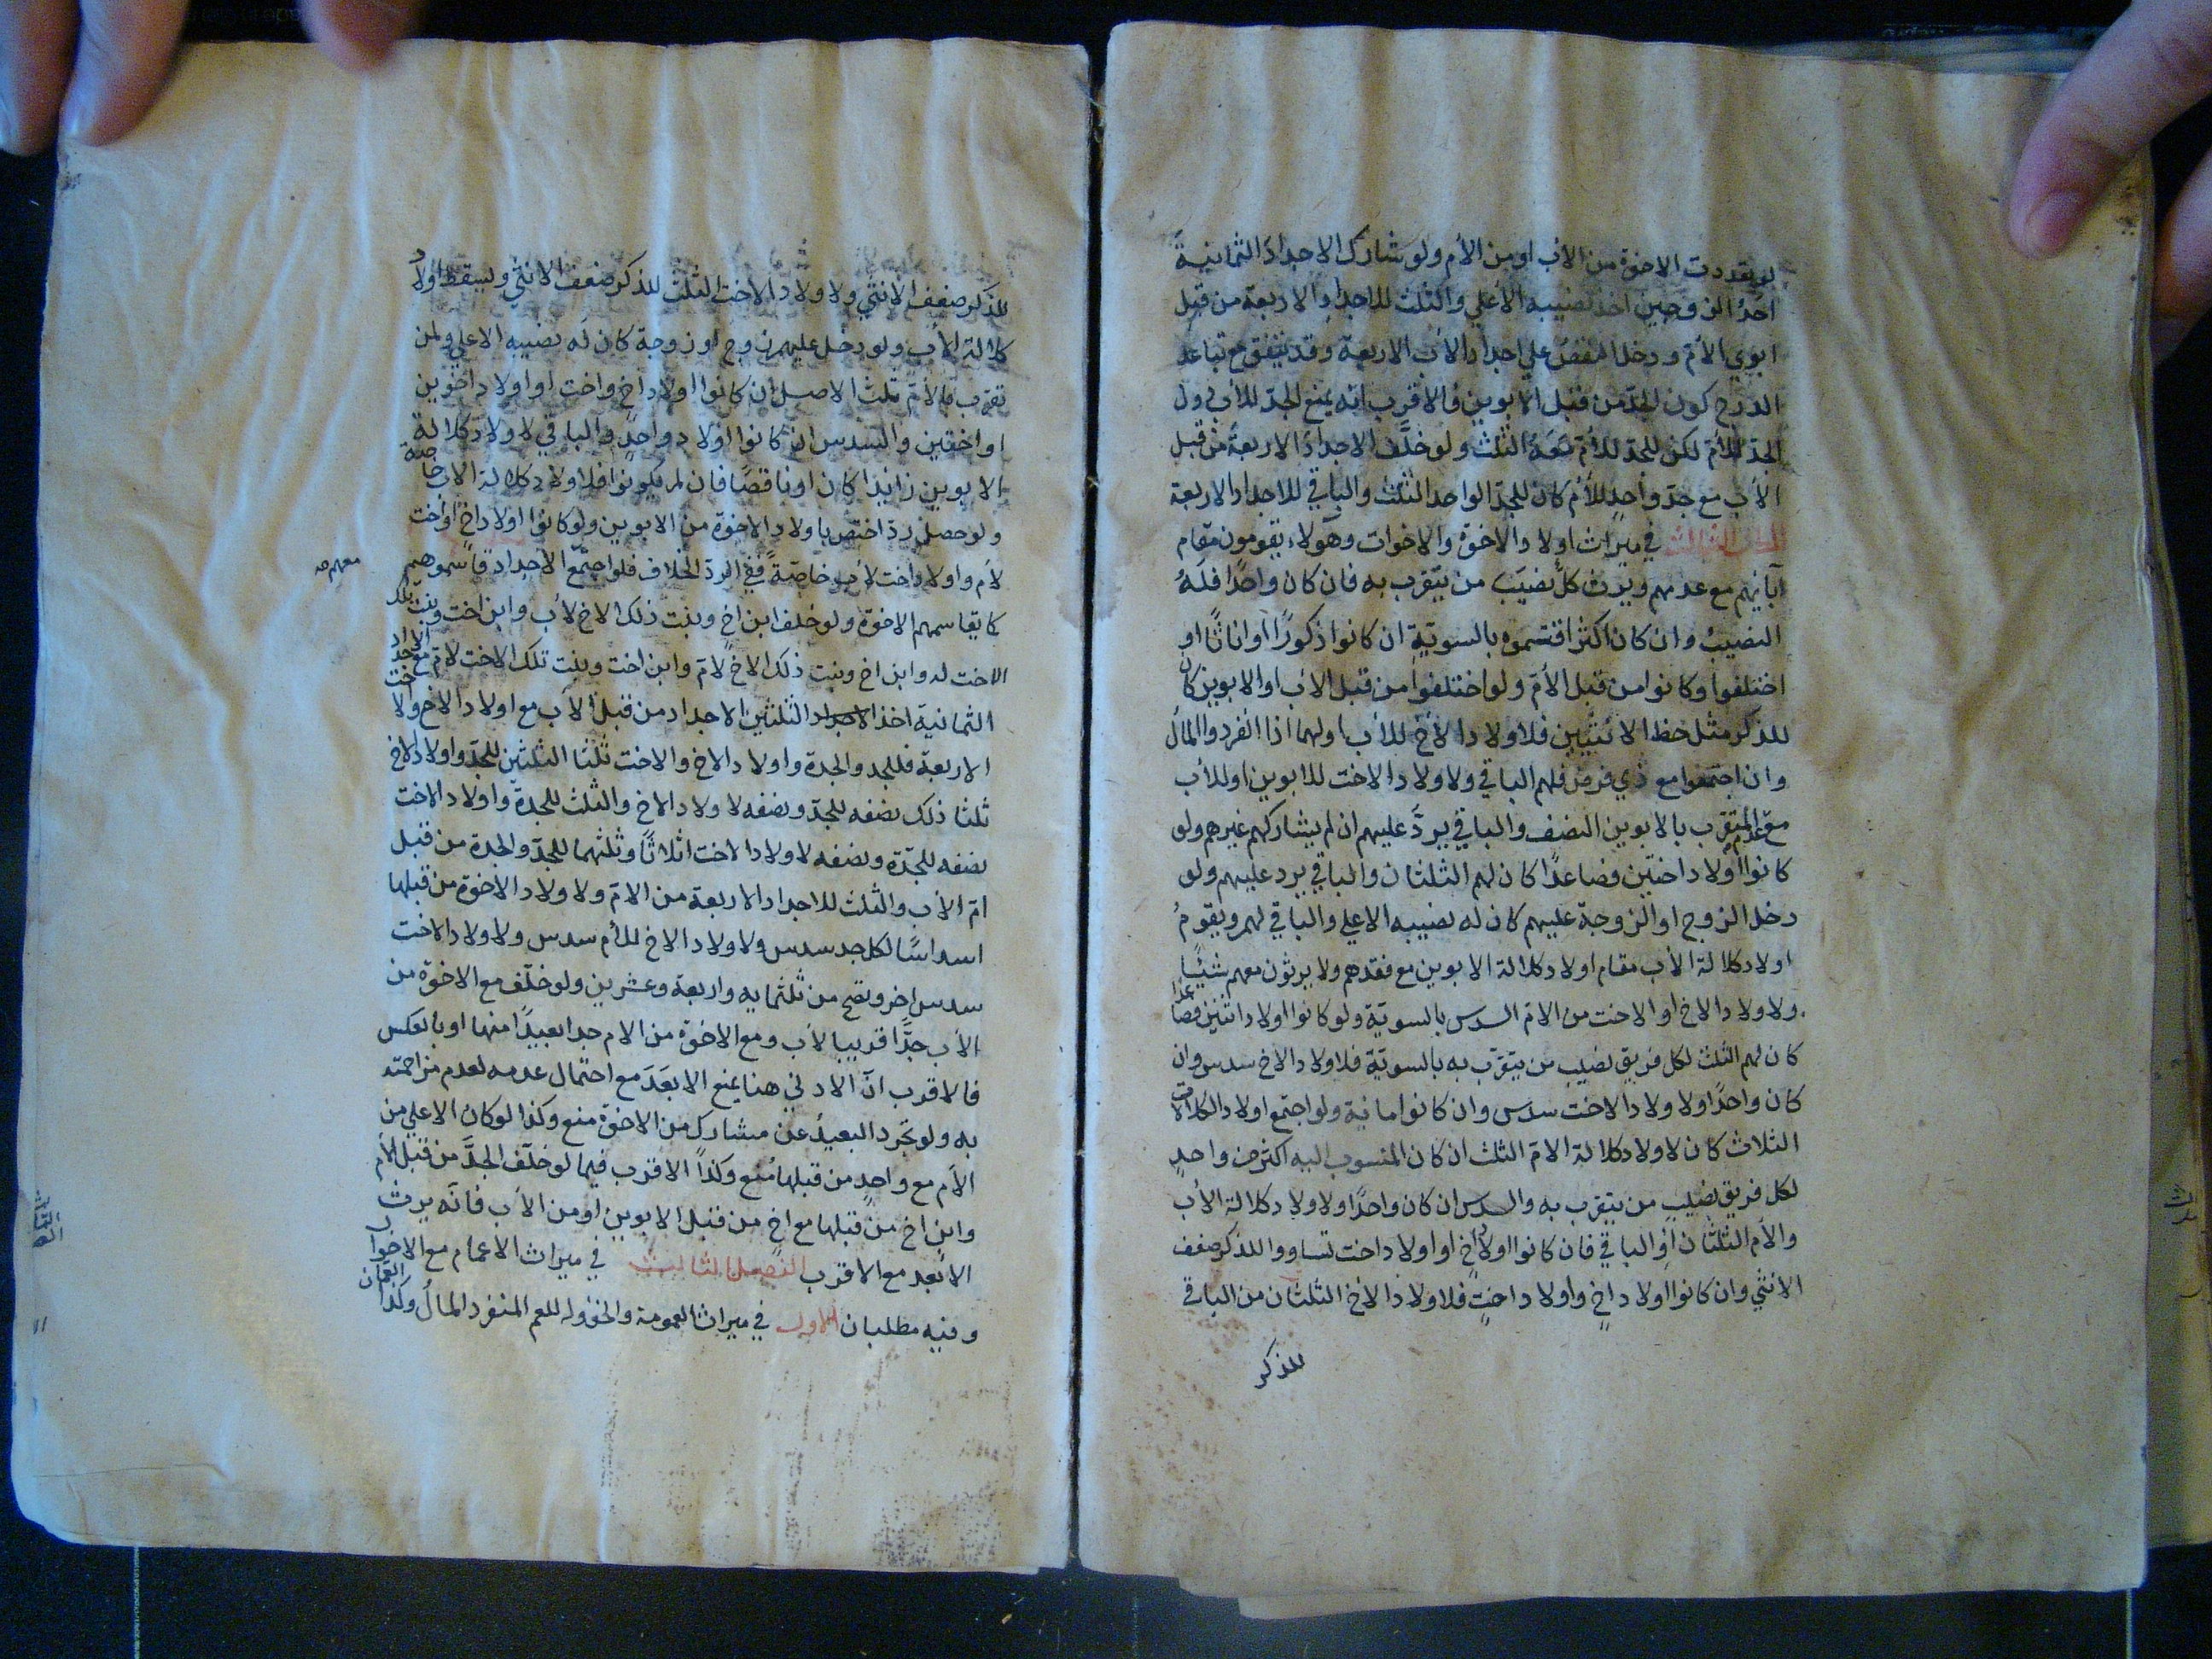 لو تعددت الاخوة من الاب او من الأم ولو شارك الاجداد الثمانية
احد الزوجين اخذ نصيبه الأعلي والثلث للاجداد الاربعة من قبل
ابوي الأم ودخل النقص علي اجداد الأب الاربعة وقد يتفق مع تباعد
الدرج كون الجد من قبل الابوين فالاقرب انه يمنع الجد للأب دون
الجد للأم لكن للجد للأم معه الثلث ولو خلف الاجداد الاربعة من قبل
الأب مع جد واحد للأم كان للجد الواحد الثلث والباقي للاجداد الاربعة
المطلب الثالث في ميراث اولاد الاخوة والاخوات وهؤلاء يقومون مقام
آبائهم مع عدمهم ويرث كل نصيب من يتقرب به فان كان واحدا فله
النصيب وان كان اكثر اقتسموه بالسوية ان كانوا ذكورا او اناثا او
اختلفوا وكانوا من قبل الأم ولو اختلفوا من قبل الأب او الابوين كان
للذكر مثل حظ الانثيين فلاولاد الأخ للأب او لهما اذا انفردوا المال
وان اجتمعوا مع ذي فرض فلهم الباقي ولاولاد الاخت للابوين او للأب
مع عدم المتقرب بالابوين النصف والباقي يرد عليهم ان لم يشاركهم غيرهم ولو
كانوا اولاد اختين فصاعدا كان لهم الثلثان والباقي يرد عليهم ولو
دخل الزوج او الزوجة عليهم كان له نصيبه الاعلي والباقي لهم ويقوم
اولاد كلالة الأب مقام اولاد كلالة الابوين مع فقدهم ولا يرثون معهم شيئا
ولاولاد الاخ او الاخت من الام السدس بالسوية ولو كانوا اولاد اثنين فصاعدا
كان لهم الثلث لكل فريق نصيب من يتقرب به بالسوية فلاولاد الاخ سدس وان
كان واحدا ولاولاد الاخت سدس وان كانوا مائة ولو اجتمع اولاد الكلالات
الثلاث كان لاولاد كلالة الام الثلث ان كان المنسوب اليه اكثر من واحد
لكل فريق نصيب من يتقرب به والسدس ان كان واحدا ولاولاد كلالة الأب
والأم الثلثان او الباقي فان كانوا اولاد اخ او اولاد اخت تساووا للذكر ضعف
الانثي وان كانوا اولاد اخ واولاد اخت فلاولاد الاخ الثلثان من الباقي
للذكر
للذكر ضعف الانثي ولاولاد الاخت الثلث للذكر ضعف الانثي ويسقط اولاد
كلالة الأب ولو دخل عليهم زوج او زوجة كان له نصيبه الاعلي ولمن
تقرب بالأم ثلث الاصل ان كانوا اولاد اخ واخت او اولاد اخوين
او اختين والسدس ان كانوا اولاد واحد والباقي لاولاد كلالة
الابوين زائدا كان او ناقصا فان لم يكونوا فلاولاد كلالة الاب خاصة
ولو حصل رد اختص باولاد الاخوة من الابوين ولو كانوا اولاد اخ او اخت
لأم واولاد اخت لأب خاصة ففي الرد الخلاف فلو اجتمع الاجداد قاسموهم
معهم صح
كما يقاسمهم الاخوة ولو خلف ابن اخ وبنت ذلك الاخ لأب وابن اخت وبنت تلك
الاخت له وابن اخ وبنت ذلك الاخ لام وابن اخت وبنت تلك الاخت لام مع الاجداد
الثمانية اخذ الاجداد الثلثين الاجداد من قبل الأب مع اولاد الاخ والاخت
الاربعة فللجد والجدة واولاد الاخ والاخت ثلثا الثلثين للجد واولاد الاخ
ثلثا ذلك نصفه للجد ونصفه لاولاد الاخ والثلث للجدة واولاد الاخت
نصفه للجدة ونصفه لاولاد الاخت اثلاثا وثلثهما للجد والجدة من قبل
ام الأب والثلث للاجداد الاربعة من الام ولاولاد الاخوة من قبلها
اسداسا لكل جد سدس ولاولاد الاخ للأم سدس ولاولاد الاخت
سدس اخر وتصح من ثلثمايه واربعة وعشرين ولو خلف مع الاخوة من
الأب جدا قريبا لأب ومع الاخوة من الام جدا بعيدا منها او بالعكس
فالاقرب ان الادني هنا يمنع الابعد مع احتمال عدمه لعدم مزاحمته
به ولو تجرد البعيد عن مشارك من الاخوة منع وكذا لو كان الاعلي من
الام مع واحد من قبلها منع وكذا الاقرب فيما لو خلف الجد من قبل الأم
وابن اخ من قبلها مع اخ من قبل الابوين او من الأب فانه يرث
الأبعد مع الاقرب الفصل الثالث في ميراث الاعمام مع الاخوال
وفيه مطلبان الاول في ميراث العمومة والخؤولة للعم المنفرد المال وكذا العمان